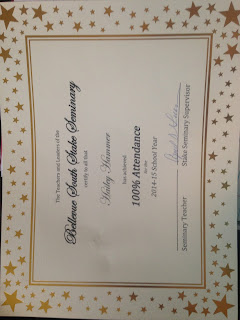 The Teachers and Leaders of the
Bellevue South Stake Seminary
certify to all that
Haley Hammer
has achieved
100% Attendance
for the
2014-15 School Year
Seminary Teacher
Stake Seminary Supervisor